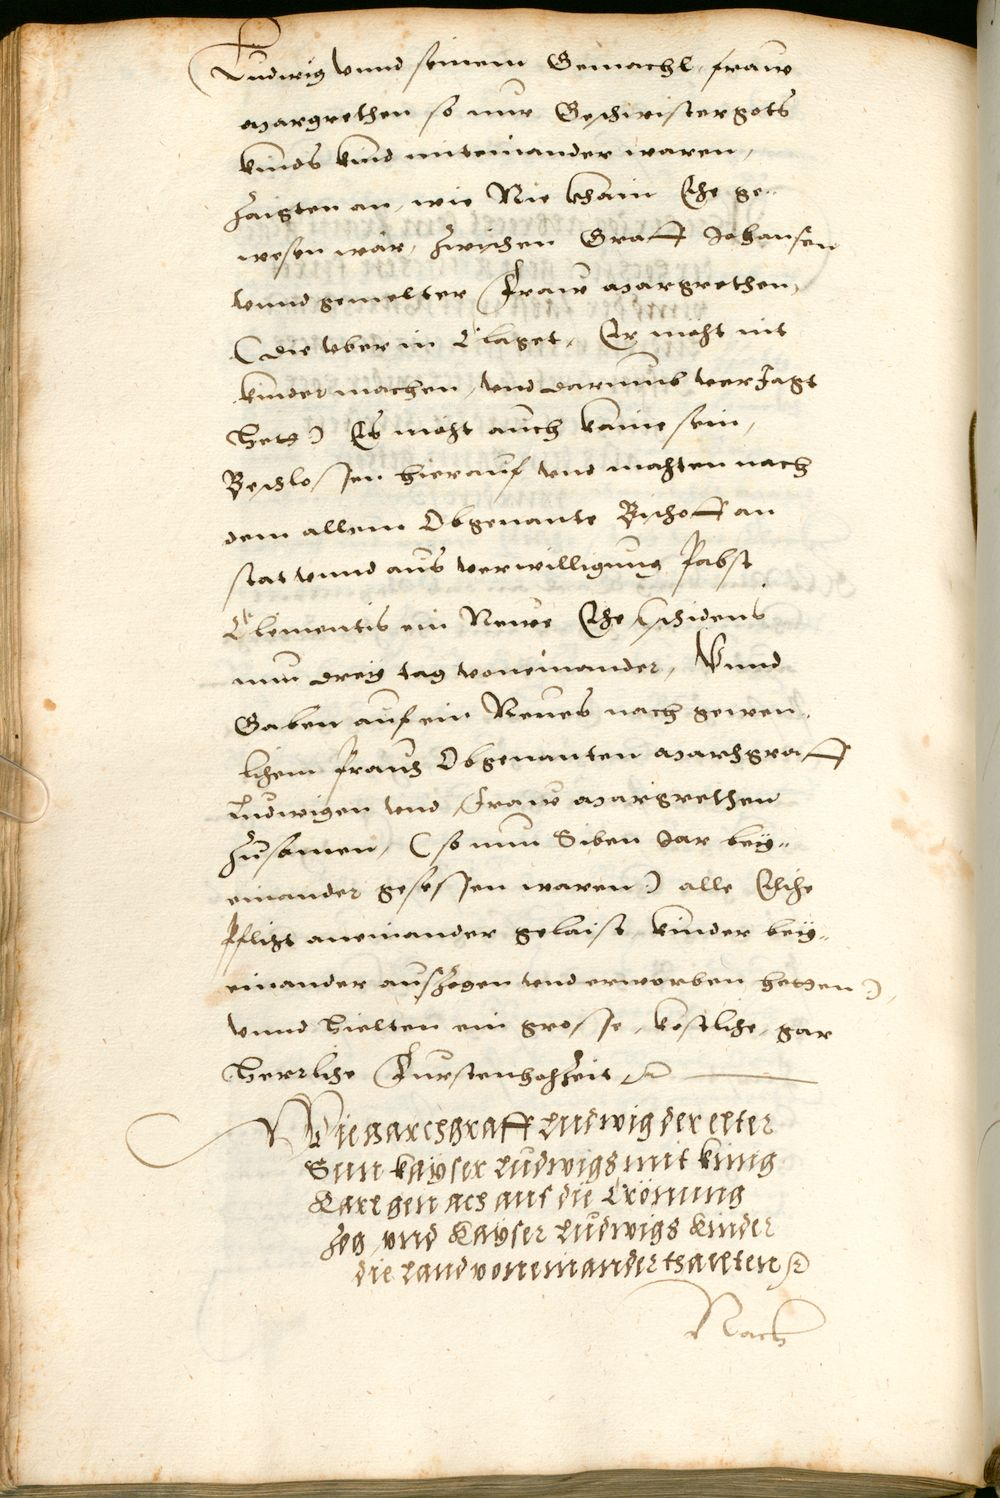 Ludwig vnnd seinem Gemachl, fraw
Margrethen so nur Geschwistergots
kinds kind miteinander waren,
Zaigten an, wie Nie khain Ehe ge=
wesen wär, zwischen Graff Johansen
vnnd gemelter Fraw Margrethen,
(Die vber in Claget, Er möht nit
kinder machen, vnd darumb veriagt
Hets) Es möht auch kaine sein,
Beschlossen hierauf vnd mahten nach
dem allem Obgenante Bischoff an
stat vnnd aus verwilligung Pabst
Clementis ein Newe Ehe, Schidens
nun dreÿ tag voneinander, Vnnd
Gaben auf ein Neues nach gewen=
lichem brauch Obgenanten Marchgraff
Ludwigen vnd Fraw Margrethen
Zusamen, (so nun Siben Jar beÿ=
einander gesessen waren) alle Ehliche
Pfliht aneinander gelaist, kinder beÿ=
einander auszogen vnd erworben hetten),
vnnd Hielten ein grosse, köstliche, gar
Herrliche Furstenhohzeit ꝛc
Wie Marchgraff Ludwig der elter
Sun kayser Ludwigs mit künig
Karl gen Ach auf die Crönung
Zog vnd Kayser Ludwigs Kinder
die Land voneinander thailten ꝛc
Nach